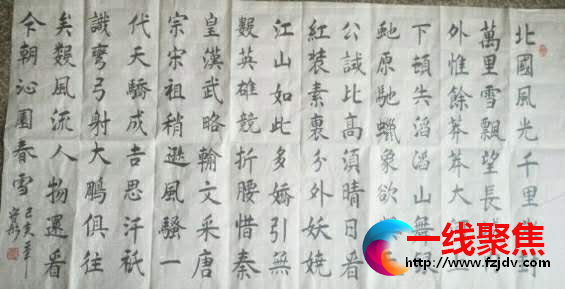 北國風光千里
萬里雪飄望長
外惟餘莽莽大
下頓失滔滔山舞
虵原馳蠟象欲
公試比高湏晴日看
紅裝素裹分外妖嬈
江山如此多嬌引無
數英雄競折腰惜秦
皇漢武略輸文采唐
宗宋祖稍遜風騷一
代天驕成吉思汗祗
識彎弓射大鵬俱往
矣數風流人物還看
今朝沁園春雪
己亥年
一线聚焦
http://www.fzjdv.com